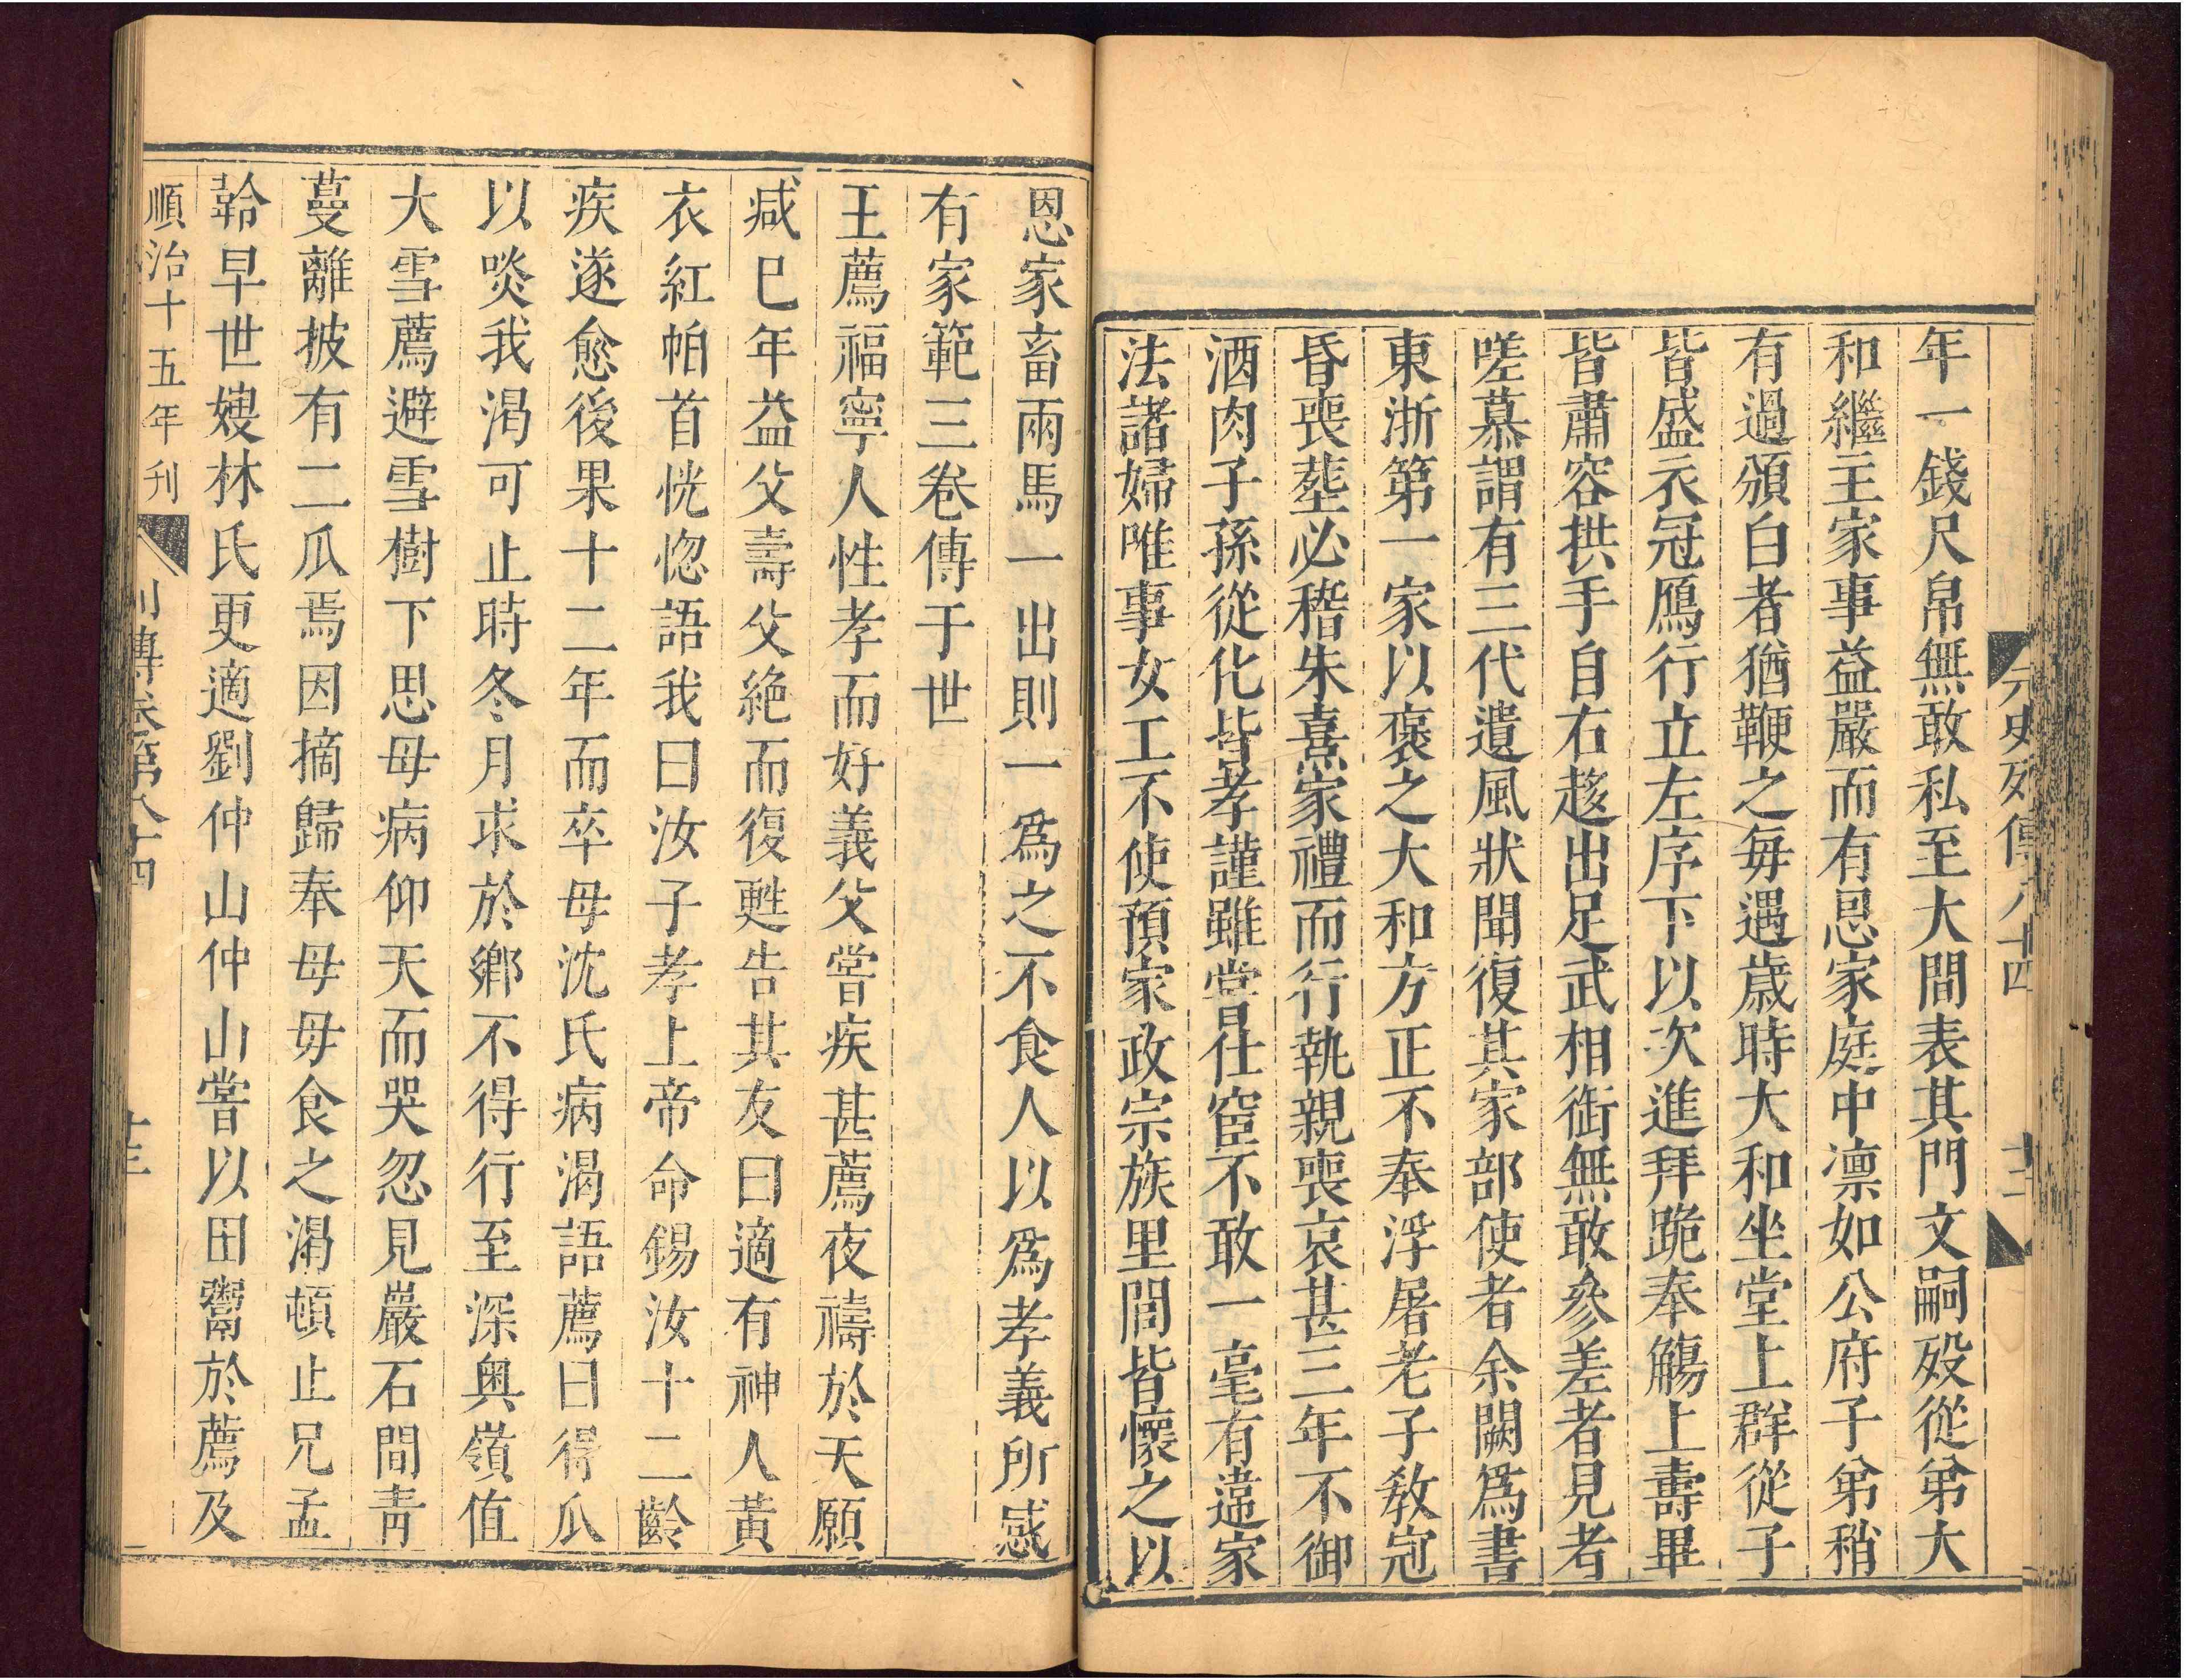 元史列傳八十四 十二
年一錢尺帛無敢私至大間表其門文嗣歿從弟大
和繼主家事益嚴而有恩家庭中凛如公府子弟稍
有過頒白者猶鞭之每遇歲時大和坐堂上群從子
皆盛衣冠鴈行立左序下以次進拜跪奉觴上壽畢
皆肅容拱手自右趍出足武相銜無敢參差者見者
嗟慕謂有三代遺風狀聞復其家部使者余闕爲書
東浙第一家以褒之大和方正不奉浮屠老子敎冠
昏喪塟必稽朱熹家禮而行執親喪哀甚三年不御
酒肉子孫從化皆孝謹雖嘗仕宦不敢一毫有違家
法諸婦唯事女工不使預家政宗族里閭皆懷之以
恩家畜兩馬一出則一爲之不食人以爲孝義所感
有家範三卷傳于世
王薦福寧人性孝而好義父嘗疾甚薦夜禱於天願
减巳年益父壽父絶而復甦告其友曰適有神人黃
衣紅帕首恍惚語我曰汝子孝上帝命錫汝十二齡
疾遂愈後果十二年而卒母沈氏病渴語薦曰得瓜
以啖我渴可止時冬月求於鄉不得行至深奥嶺值
大雪薦避雪樹下思母病仰天而哭忽見巖石間靑
蔓離披有二瓜焉因摘歸奉母母食之渴頓止兄孟
榦早世嫂林氏更適劉仲山仲山嘗以田鬻於薦及
順治十五年刊 列傳卷第八十四 十三